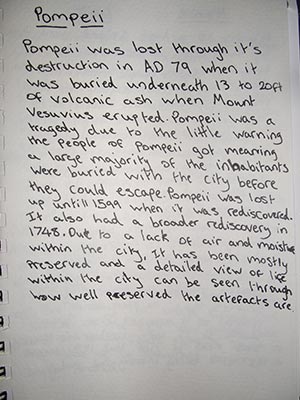 Pompeii
Pompeii was lost through it's
destruction in AD 79 when it
was buried underneath 13 to 20ft
of volcanic ash when Mount
Vesuvius erupted. Pompeii was a
tragedy due to the little warning
the people of Pompeii got meaning
a large majority of the inhabitants
were buried with the city before
they could escape. Pompeii was lost
up until 1599 when it was rediscovered.
It also had a broader rediscovery in
1748. Due to a lack of air and moisture
within the city, It has been mostly
preserved and a detailed view of life
within the city can be seen through
how well preserved the artefacts are